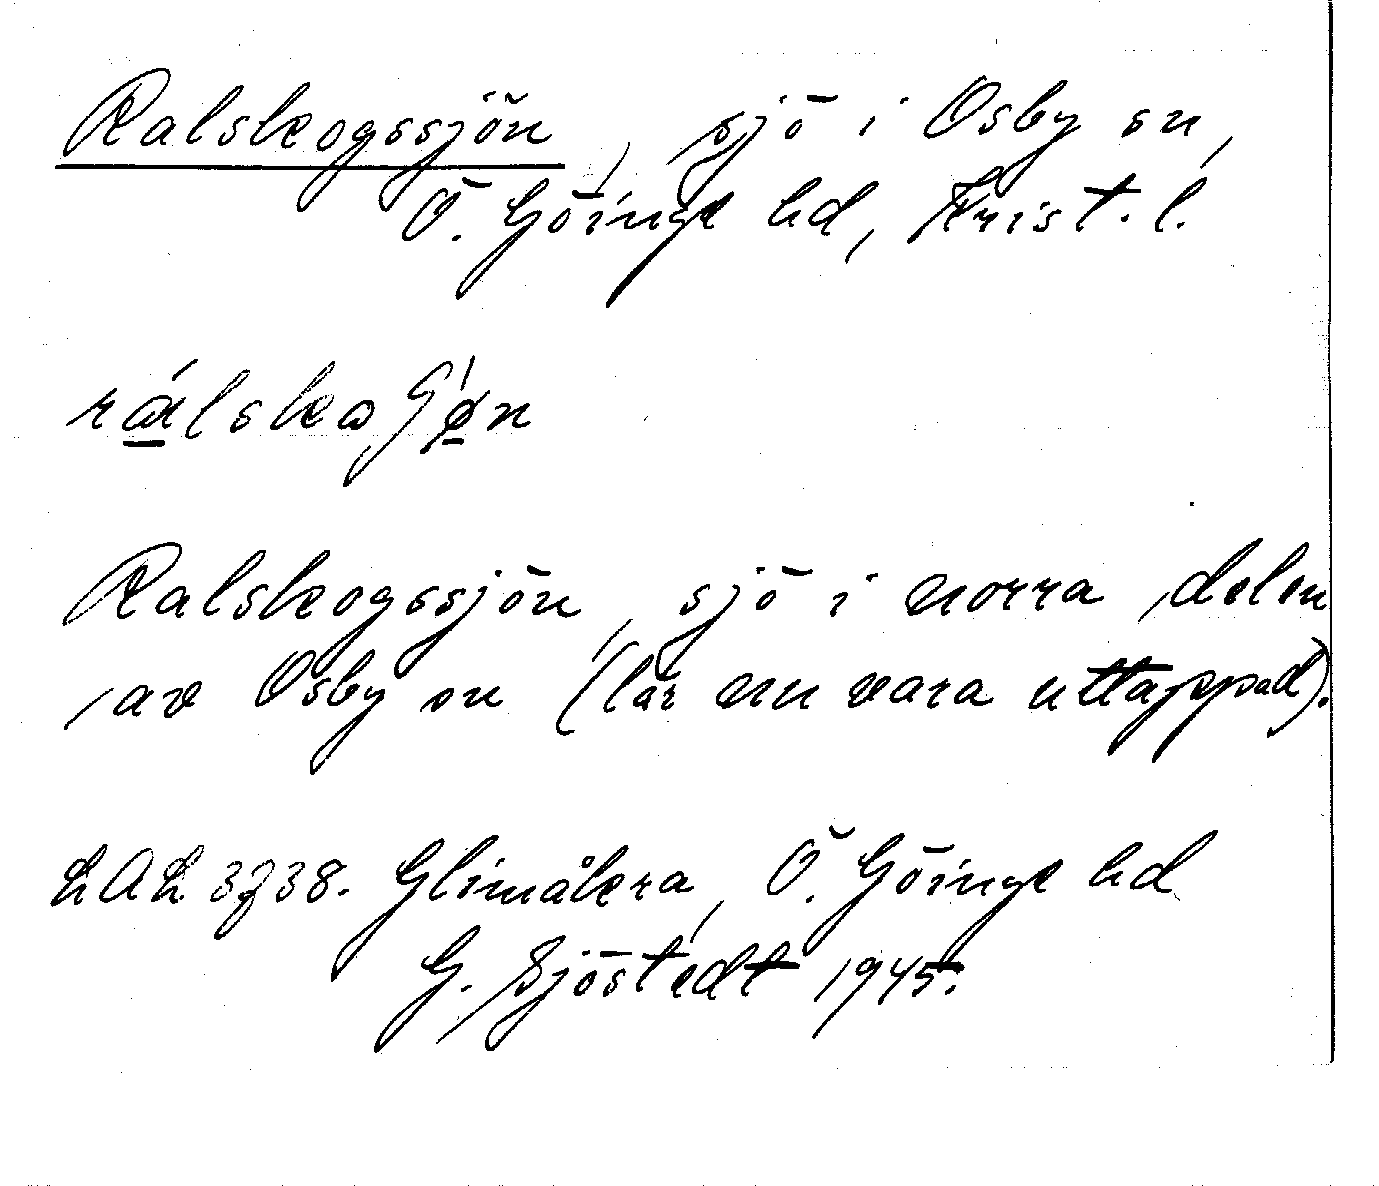 Ralskogssjön, sjö i Osby sn,
Ö. Göinge hd, Krist. l.
Ralskogssjön, sjö i norra delen
av Osby sn (lär nu vara uttappad).
LAL 3738. Glimåkra, Ö. Göinge hd
G. Sjöstedt 1945.